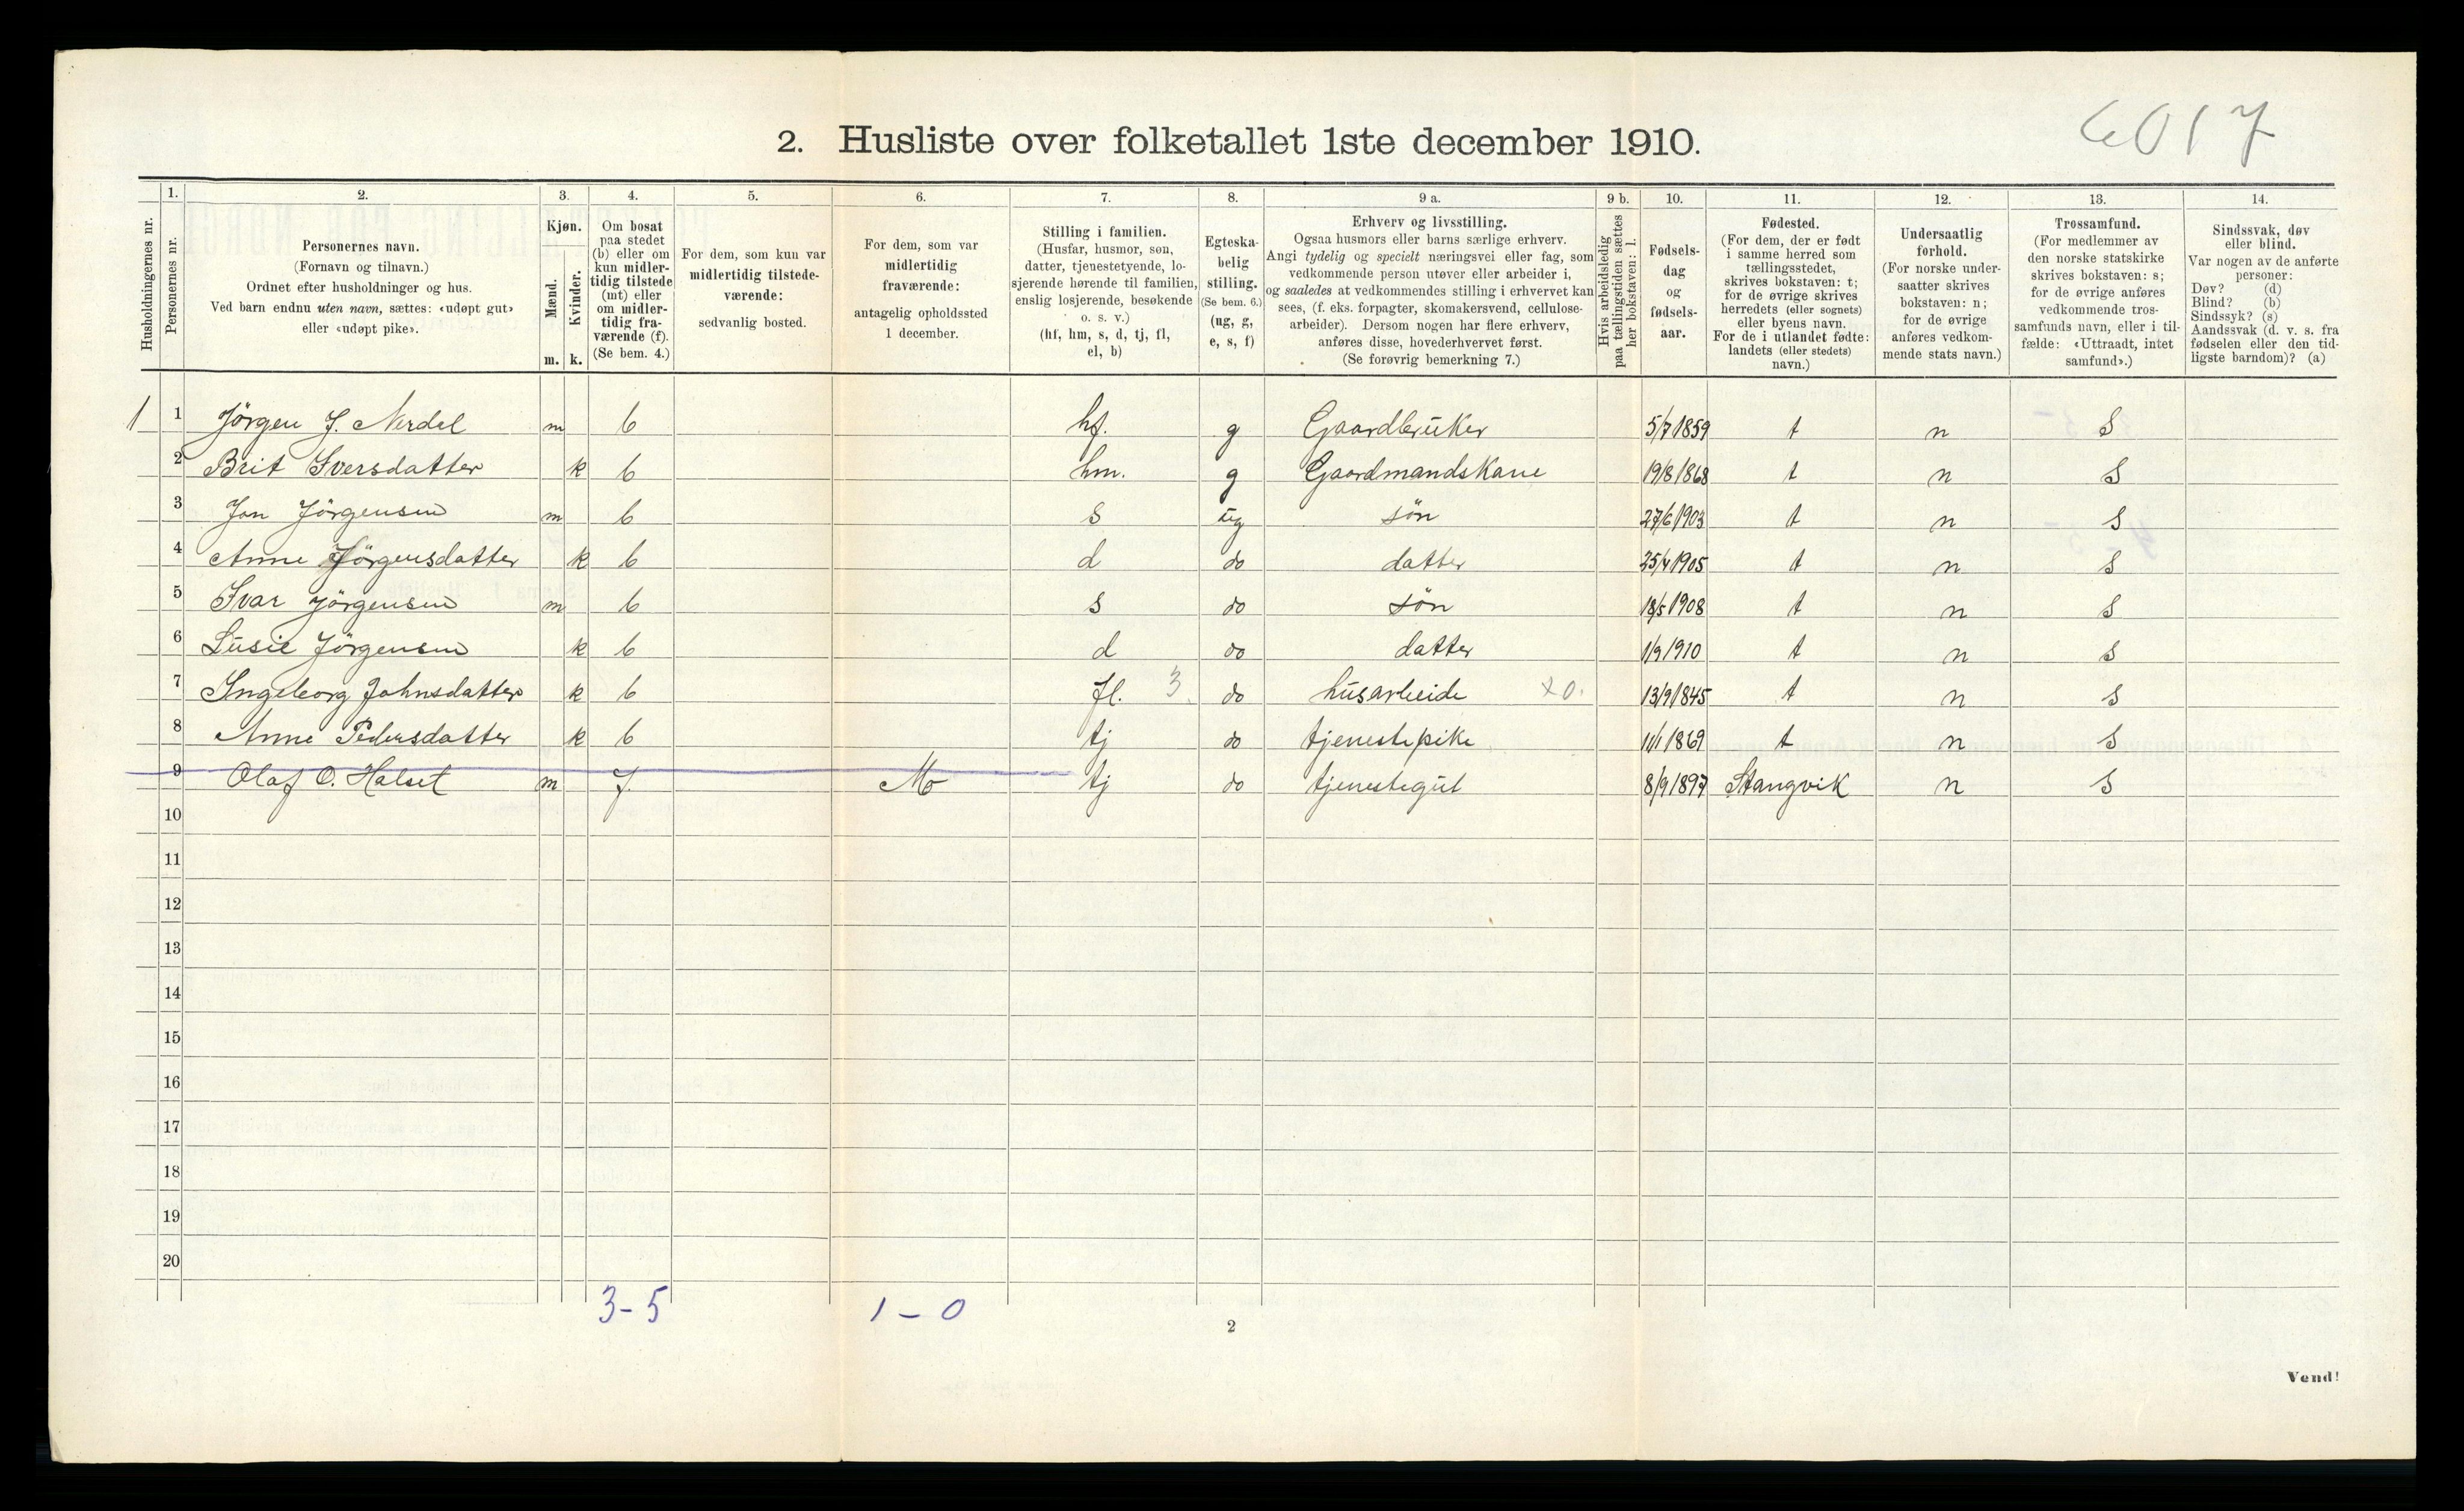 6017
2. Husliste over folketallet 1ste december 1910.
Husholdningernes nr.
1.
Personernes nr.
2.
Personernes navn.
(Fornavn og tilnavn.)
Ordnet efter husholdninger og hus.
Ved barn endnu uten navn, sættes: «udøpt gut»
eller «udøpt pike».
3.
Kjøn.
Mænd.
Kvinder.
m. k.
4.
Om bosat
paa stedet
(b) eller om
kun midler-
tidig tilstede
(mt) eller
om midler-
tidig fra-
værende (f).
(Se bem. 4.)
5.
For dem, som kun var
midlertidig tilstede-
værende:
sedvanlig bosted.
6.
For dem, som var
midlertidig
fraværende:
antagelig opholdssted
1 december.
7.
Stilling i familien.
(Husfar, husmor, søn,
datter, tjenestetyende, lo-
sjerende hørende til familien,
enslig losjerende, besøkende
o. s. v.)
(hf, hm, s, d, tj, fl,
el, b)
8.
Egteska-
belig
stilling.
(Se bem. 6.)
(ug, g,
e, s, f)
9 a.
Erhverv og livsstilling.
Ogsaa husmors eller barns særlige erhverv.
Angi tydelig og specielt næringsvei eller fag, som
vedkommende person utøver eller arbeider i,
og saaledes at vedkommendes stilling i erhvervet kan
sees, (f. eks. forpagter, skomakersvend, cellulose-
arbeider). Dersom nogen har flere erhverv,
anføres disse, hovederhvervet først.
(Se forøvrig bemerkning 7.)
9 b.
Hvis arbeidsledig
paa tællingstiden sættes
her bokstaven: l.
10.
Fødsels-
dag
og
fødsels-
aar.
11.
Fødested.
(For dem, der er født
i samme herred som
tællingsstedet,
skrives bokstaven: t;
for de øvrige skrives
herredets (eller sognets)
eller byens navn.
For de i utlandet fødte:
landets (eller stedets)
navn.)
12.
Undersaatlig
forhold.
(For norske under-
saatter skrives
bokstaven: n;
for de øvrige
anføres vedkom-
mende stats navn.)
13.
Trossamfund.
(For medlemmer av
den norske statskirke
skrives bokstaven: s;
for de øvrige anføres
vedkommende tros-
samfunds navn, eller i til-
fælde: «Uttraadt, intet
samfund».)
14.
Sindssvak, døv
eller blind.
Var nogen av de anførte
personer:
Døv? (d)
Blind? (b)
Sindssyk? (s)
Aandssvak (d. v. s. fra
fødselen eller den tid-
ligste barndom)? (a)
1 1 Jörgen J. Nerdel m b hf. g Gaardbruker 5/7 1859 t n S
2 Brit Iversdatter k b hm. g Gaardmandskane 19/8 1868 t n S
3 Jon Jörgensen m b s ug sön 27/6 1903 t n S
4 Anne Jörgensdatter k b d do datter 25/4 1905 t n S
5 Ivar Jörgensen m b s do sön 18/5 1908 t n S
6 Lusie Jörgensen k b d do datter 1/9 1910 t n S
7 Ingeborg Johnsdatter k b fl. 3 do husarbeide x 0. 13/9 1845 t n S
8 Anne Pedersdatter k b tj do tjenestepike 11/1 1869 t n S
9 Olaf O. Halset m f. Mo tj do tjenestegut 8/9 1897 Stangvik n S
10
11
12
13
14
15
16
17
18
19
20
3-5 1-0
2
Vend!